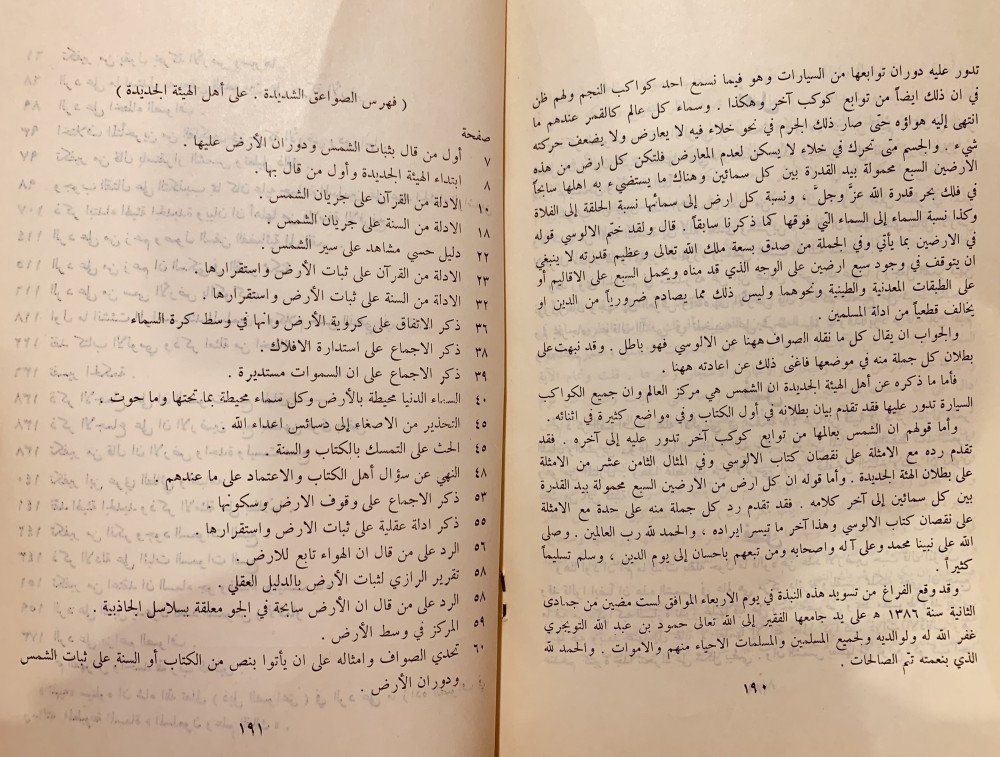 تدور عليه دوران توابعها من السيارات وهو فيما نسمع احد كواكب النجم ولهم ظن
في ان ذلك ايضاً من توابع كوكب آخر وهكذا . وسماء كل عالم كالقمر عندهم ما
انتهى إليه هواؤه حتى صار ذلك الجرم في نحو خلاء فيه لا يعارض ولا يضعف حركته
شيء . والجسم متى تحرك في خلاء لا يسكن لعدم المعارض فلتكن كل ارض من هذه
الارضين السبع محمولة بيد القدرة بين كل سمائين وهناك ما يستضيء به اهلها سابحاً
في فلك بحر قدرة الله عزَّ وجلَّ ، ونسبة كل ارض إلى سمائها نسبة الحلقة إلى الفلاة
وكذا نسبة السماء إلى السماء التي فوقها كما ذكرنا سابقاً . قال ولقد ختم الالوسي قوله
في الارضين بما يأتي وفي الجملة من صدق بسعة ملك الله تعالى وعظيم قدرته لا ينبغي
ان يتوقف في وجود سبع ارضين على الوجه الذي قد مناه ويحمل السبع على الاقاليم أو
على الطبقات المعدنية والطينية ونحوهما وليس ذلك مما يصادم ضرورياً من الدين او
يخالف قطعياً من ادلة المسلمين .
والجواب ان يقال كل ما نقله الصواف ههنا عن الالوسي فهو باطل . وقد نبهت على
بطلان كل جملة منه في موضعها فاغنى ذلك عن اعادته ههنا .
فأما ما ذكره عن أهل الهيئة الجديدة ان الشمس هي مركز العالم وان جميع الكواكب
السيارة تدور عليها فقد تقدم بيان بطلانه في أول الكتاب وفي مواضع كثيرة في اثنائه .
وأما قولهم ان الشمس بعالمها من توابع كوكب آخر تدور عليه إلى آخره . فقد
تقدم رده مع الامثلة على نقصان كتاب الالوسي وفي المثال الثامن عشر من الامثلة
على بطلان الهئة الجديدة . وأما قوله ان كل ارض من الارضين السبع محمولة بيد القدرة
بين كل سمائين إلى آخر كلامه . فقد تقدم رد كل جملة منه على حدة مع الامثلة
على نقصان كتاب الالوسي وهذا آخر ما تيسر ايراده ، والحمد لله رب العالمين . وصلى
الله على نبينا محمد وعلى آله واصحابه ومن تبعهم باحسان إلى يوم الدين ، وسلم تسليماً
كثيراً .
وقد وقع الفراغ من تسويد هذه النبذة في يوم الاربعاء الموافق لست مضين من جمادى
الثانية سنة ١٣٨٦ هـ على يد جامعها الفقير إلى الله تعالى حمود بن عبد الله التويجري
غفر الله له ولوالديه ولجميع المسلمين والمسلمات الاحياء منهم والاموات . والحمد لله
الذي بنعمته تتم الصالحات .
١٩٠
( فهرس الصواعق الشديدة . على أهل الهيئة الجديدة )
صفحة
٧ أول من قال بثبات الشمس ودوران الأرض عليها .
٨ ابتداء الهيئة الجديدة وأول من قال بها .
١٠ الادلة من القرآن على جريان الشمس .
١٨ الادلة من السنة على جريان الشمس .
٢٢ دليل حسي مشاهد على سير الشمس .
٢٣ الادلة من القرآن على ثبات الأرض واستقرارها .
٣٢ الادلة من السنة على ثبات الأرض واستقرارها .
٣٦ ذكر الاتفاق على كروية الأرض وانها في وسط كرة السماء
٣٨ ذكر الاجماع على استدارة الافلاك .
٣٩ ذكر الاجماع على ان السموات مستديرة .
٤٠ السماء الدنيا محيطة بالأرض وكل سماء محيطة بما تحتها وما حوت .
٤٥ التحذير من الاصغاء إلى دسائس اعداء الله .
٤٥ الحث على التمسك بالكتاب والسنة .
٤٨ النهي عن سؤال أهل الكتاب والاعتماد على ما عندهم .
٥٣ ذكر الاجماع على وقوف الارض وسكونها .
٥٥ ذكر ادلة عقلية على ثبات الارض واستقرارها .
٥٦ الرد على من قال ان الهواء تابع للارض .
٥٨ تقرير الرازي لثبات الأرض بالدليل العقلي .
٥٨ الرد على من قال ان الأرض سابحة في الجو معلقة بسلاسل الجاذبية .
٥٩ المركز في وسط الأرض .
٦٠ تحدي الصواف وامثاله على ان يأتوا بنص من الكتاب أو السنة على ثبات الشمس
ودوران الأرض .
١٩١